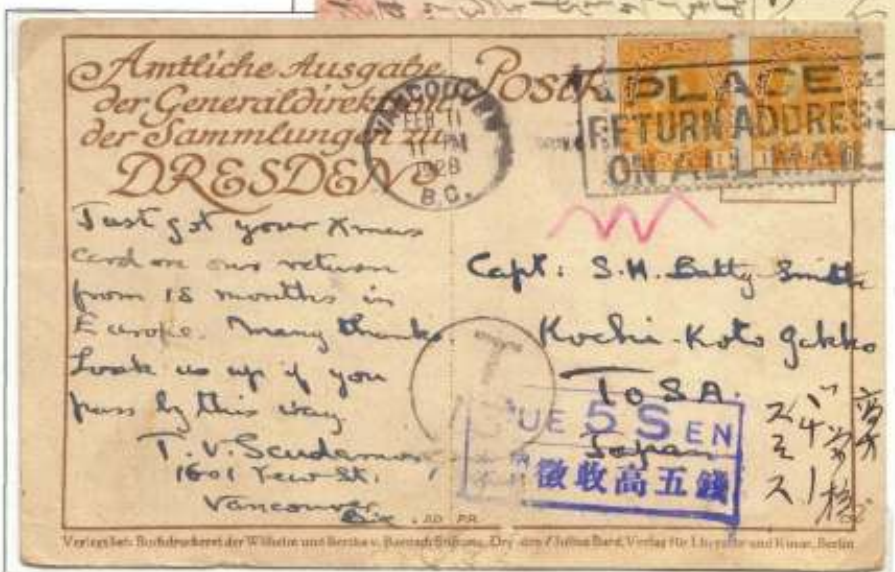 Amtliche Ausgabe
der Generaldirektion
der Sammlungen zu
DRESDEN
Postk
VANCOUVER
FEB 11
11 PM
1928
B.C.
PLACE
RETURN ADDRESS
ON ALL MAIL
Just got your Xmas
card on our return
from 18 months in
Europe. Many thanks.
Look us up if you
pass by this way
T.V. Scudamore
1601 Yew St.
Vancouver
Capt: S.H. Batty Smith
Kochi-Koto Gakko
TOSA.
Japan
T
UE 5 SEN
徴收高五錢
スミス
Verlegt bei: Buchdruckerei der Wilhelm und Bertha v. Baensch Stiftung, Dresden / Julius Bard, Verlag für Literatur und Kunst, Berlin